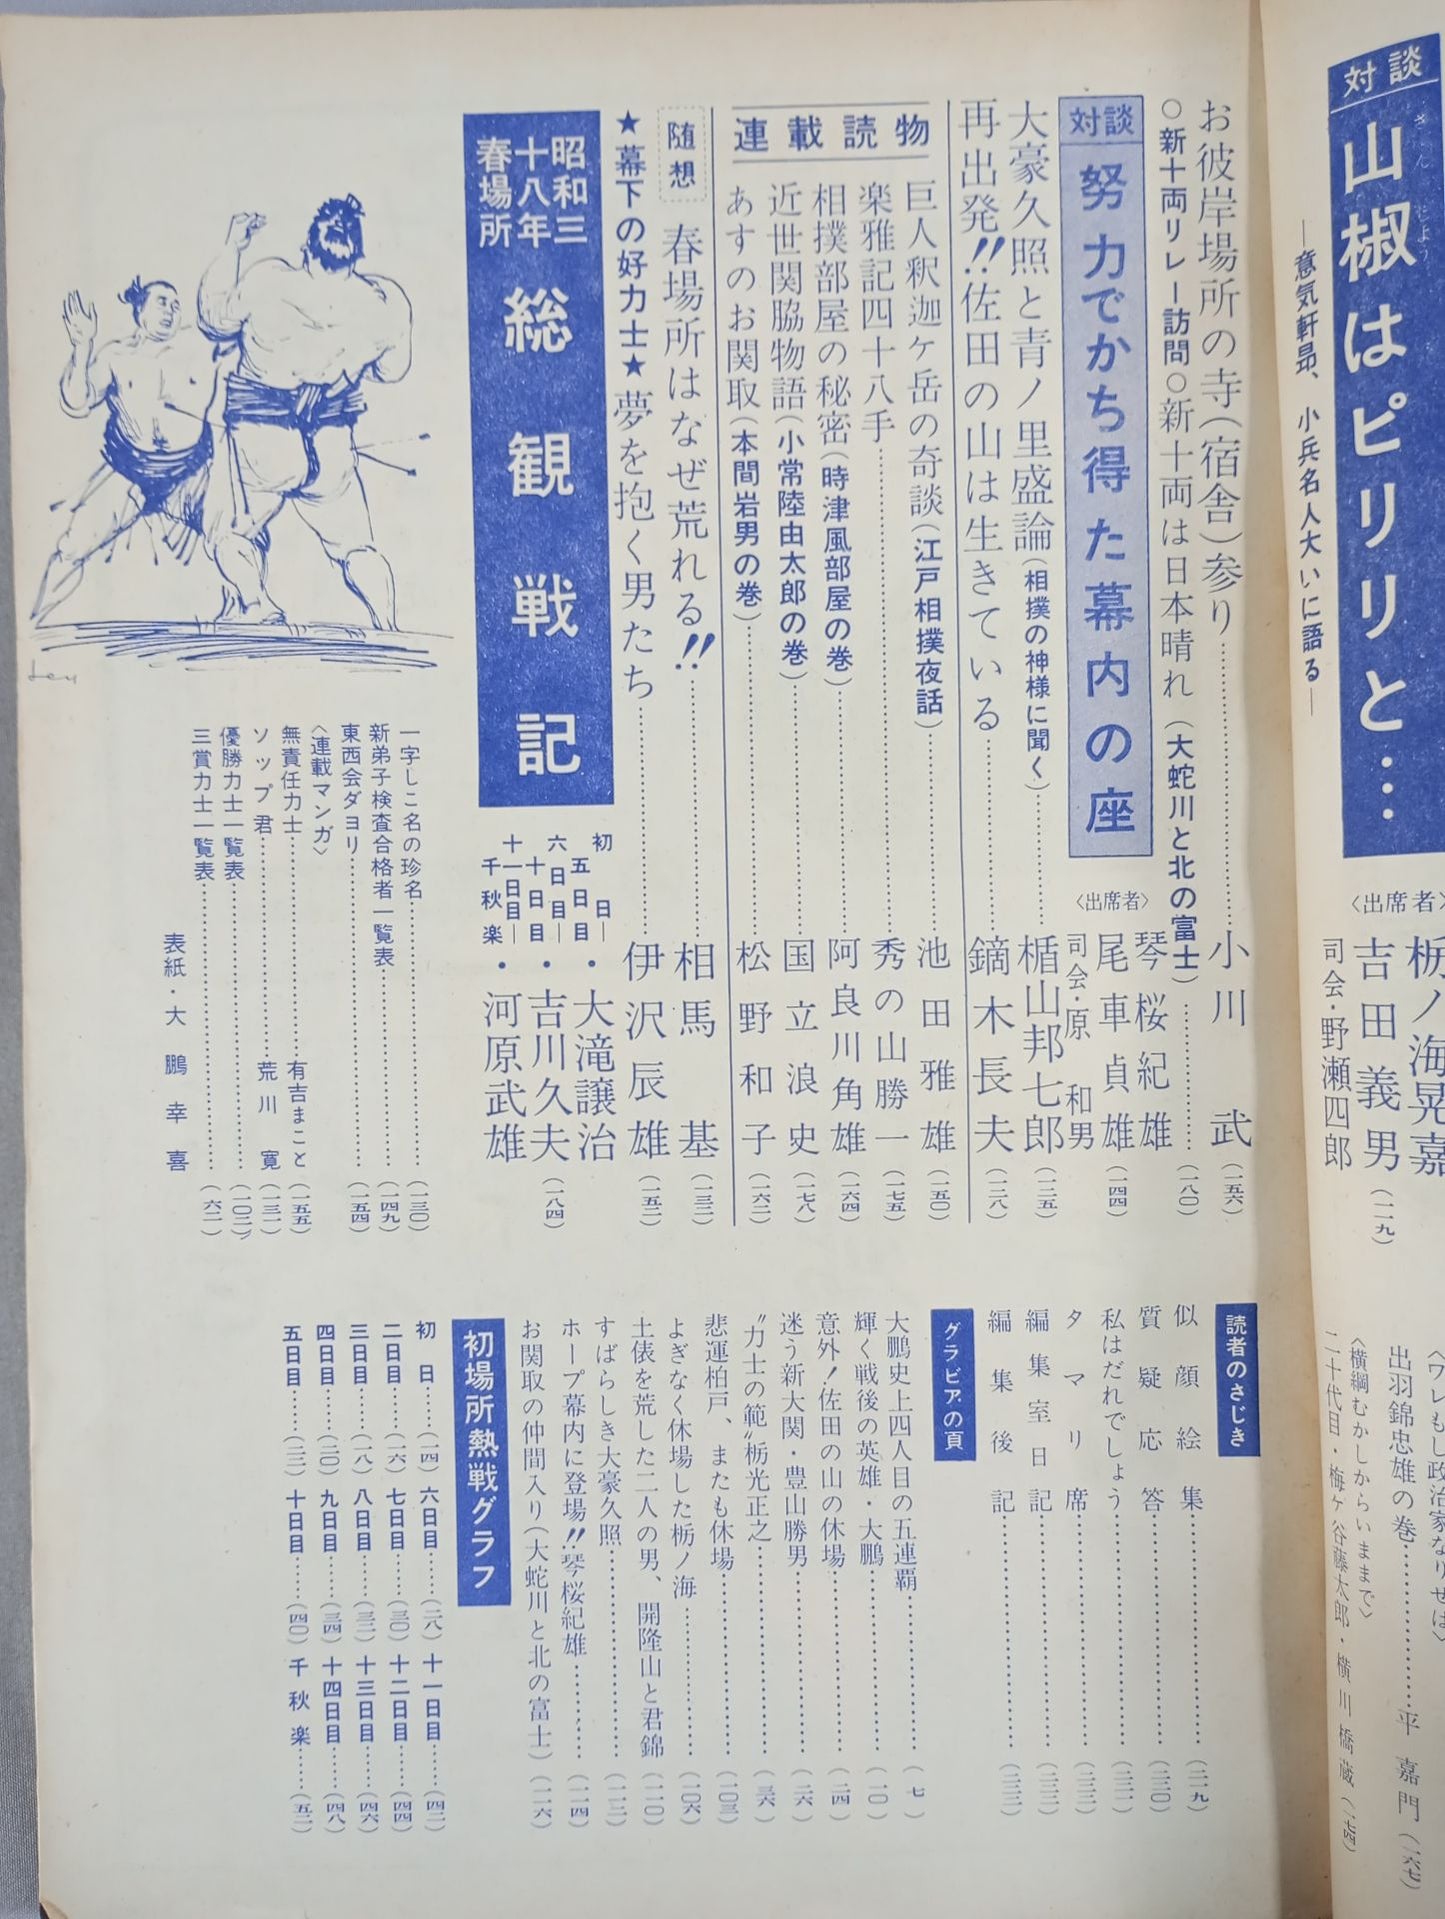 対談
山椒はピリリと…
さんしょう
―意気軒昂、小兵名人大いに語る―
〈出席者〉
栃ノ海晃嘉
吉田義男
司会・野瀬四郎
(一一九)
出羽錦忠雄の巻…………平嘉門(一六七)
〈横綱むかしからいままで〉
二十代目・梅ケ谷藤太郎・横川橋蔵
お彼岸場所の寺(宿舎)参り…………小川武(一五六)
○新十両リレー訪問○新十両は日本晴れ(大蛇川と北の富士)…………(一八〇)
対談 努力でかち得た幕内の座
〈出席者〉
琴桜紀雄
尾車貞雄
司会・原和男
(一四四)
大豪久照と青ノ里盛論(相撲の神様に聞く)…………楯山邦七郎(一二五)
再出発!!佐田の山は生きている…………鏑木長夫(一二八)
連載読物
巨人釈迦ケ岳の奇談(江戸相撲夜話)…………池田雅雄(一五〇)
楽雅記四十八手…………秀の山勝一(一七五)
相撲部屋の秘密(時津風部屋の巻)…………阿良川角雄(一六四)
近世関脇物語(小常陸由太郎の巻)…………国立浪史(一七八)
あすのお関取(本間岩男の巻)…………松野和子(一六二)
随想 春場所はなぜ荒れる!!…………相馬基(一三二)
★幕下の好力士★夢を抱く男たち…………伊沢辰雄(一五二)
昭和三十八年春場所 総観戦記
初日―五日目・大滝譲治
六日目―十日目・吉川久夫
十一日目―千秋楽・河原武雄
(一八四)
一字しこ名の珍名…………(一三〇)
新弟子検査合格者一覧表…………(一四九)
東西会ダヨリ…………(一五四)
〈連載マンガ〉
無責任力士…………有吉まこと(一五五)
ソップ君…………荒川寛(一三一)
優勝力士一覧表…………(一〇二)
三賞力士一覧表…………(六二)
表紙・大鵬幸喜
読者のさじき
似顔絵集…………(二一九)
質疑応答…………(二二〇)
私はだれでしょう…………(二二一)
タマリ席…………(二二二)
編集室日記…………(二二二)
編集後記…………(二二二)
グラビアの頁
大鵬史上四人目の五連覇…………(七)
輝く戦後の英雄・大鵬…………(一〇)
意外!佐田の山の休場…………(二四)
迷う新大関・豊山勝男…………(二六)
"力士の範"栃光正之…………(三六)
悲運柏戸、またも休場…………(一〇三)
よぎなく休場した栃ノ海…………(一〇六)
土俵を荒した二人の男、開隆山と君錦…………(一一〇)
すばらしき大豪久照…………(一一二)
ホープ幕内に登場!!琴桜紀雄…………(一一四)
お関取の仲間入り(大蛇川と北の富士)…………(一一六)
初場所熱戦グラフ
初日……(一四)六日目……(二八)十一日目……(四二)
二日目……(一六)七日目……(三〇)十二日目……(四四)
三日目……(一八)八日目……(三二)十三日目……(四六)
四日目……(二〇)九日目……(三四)十四日目……(四八)
五日目……(二二)十日目……(四〇)千秋楽……(五二)